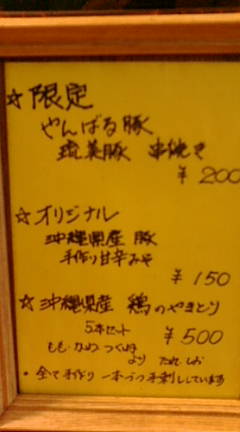 ☆限定
やんばる豚
琉美豚 串焼き
¥200
☆オリジナル
沖縄県産 豚
手作り甘辛みそ
¥150
☆沖縄県産 鶏のやきとり
5本セット ¥500
もも・かわ・つくね
より たれ しお
・全て手作り 一本づつ手刺ししています